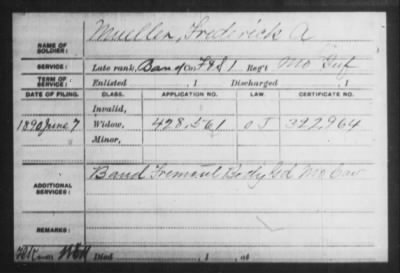 Mueller, Frederick A
NAME OF SOLDIER:
SERVICE: Late rank, Band Co. F&S 1 Reg't Mo Inf
TERM OF SERVICE: Enlisted , 1 Discharged , 1
DATE OF FILING. CLASS. APPLICATION NO. LAW. CERTIFICATE NO.
Invalid,
1890 June 7 Widow, 428,561 O J 322,964
Minor,
ADDITIONAL SERVICES: Band Fremont Body Gd Mo Cav
REMARKS:
Died , 1 , at